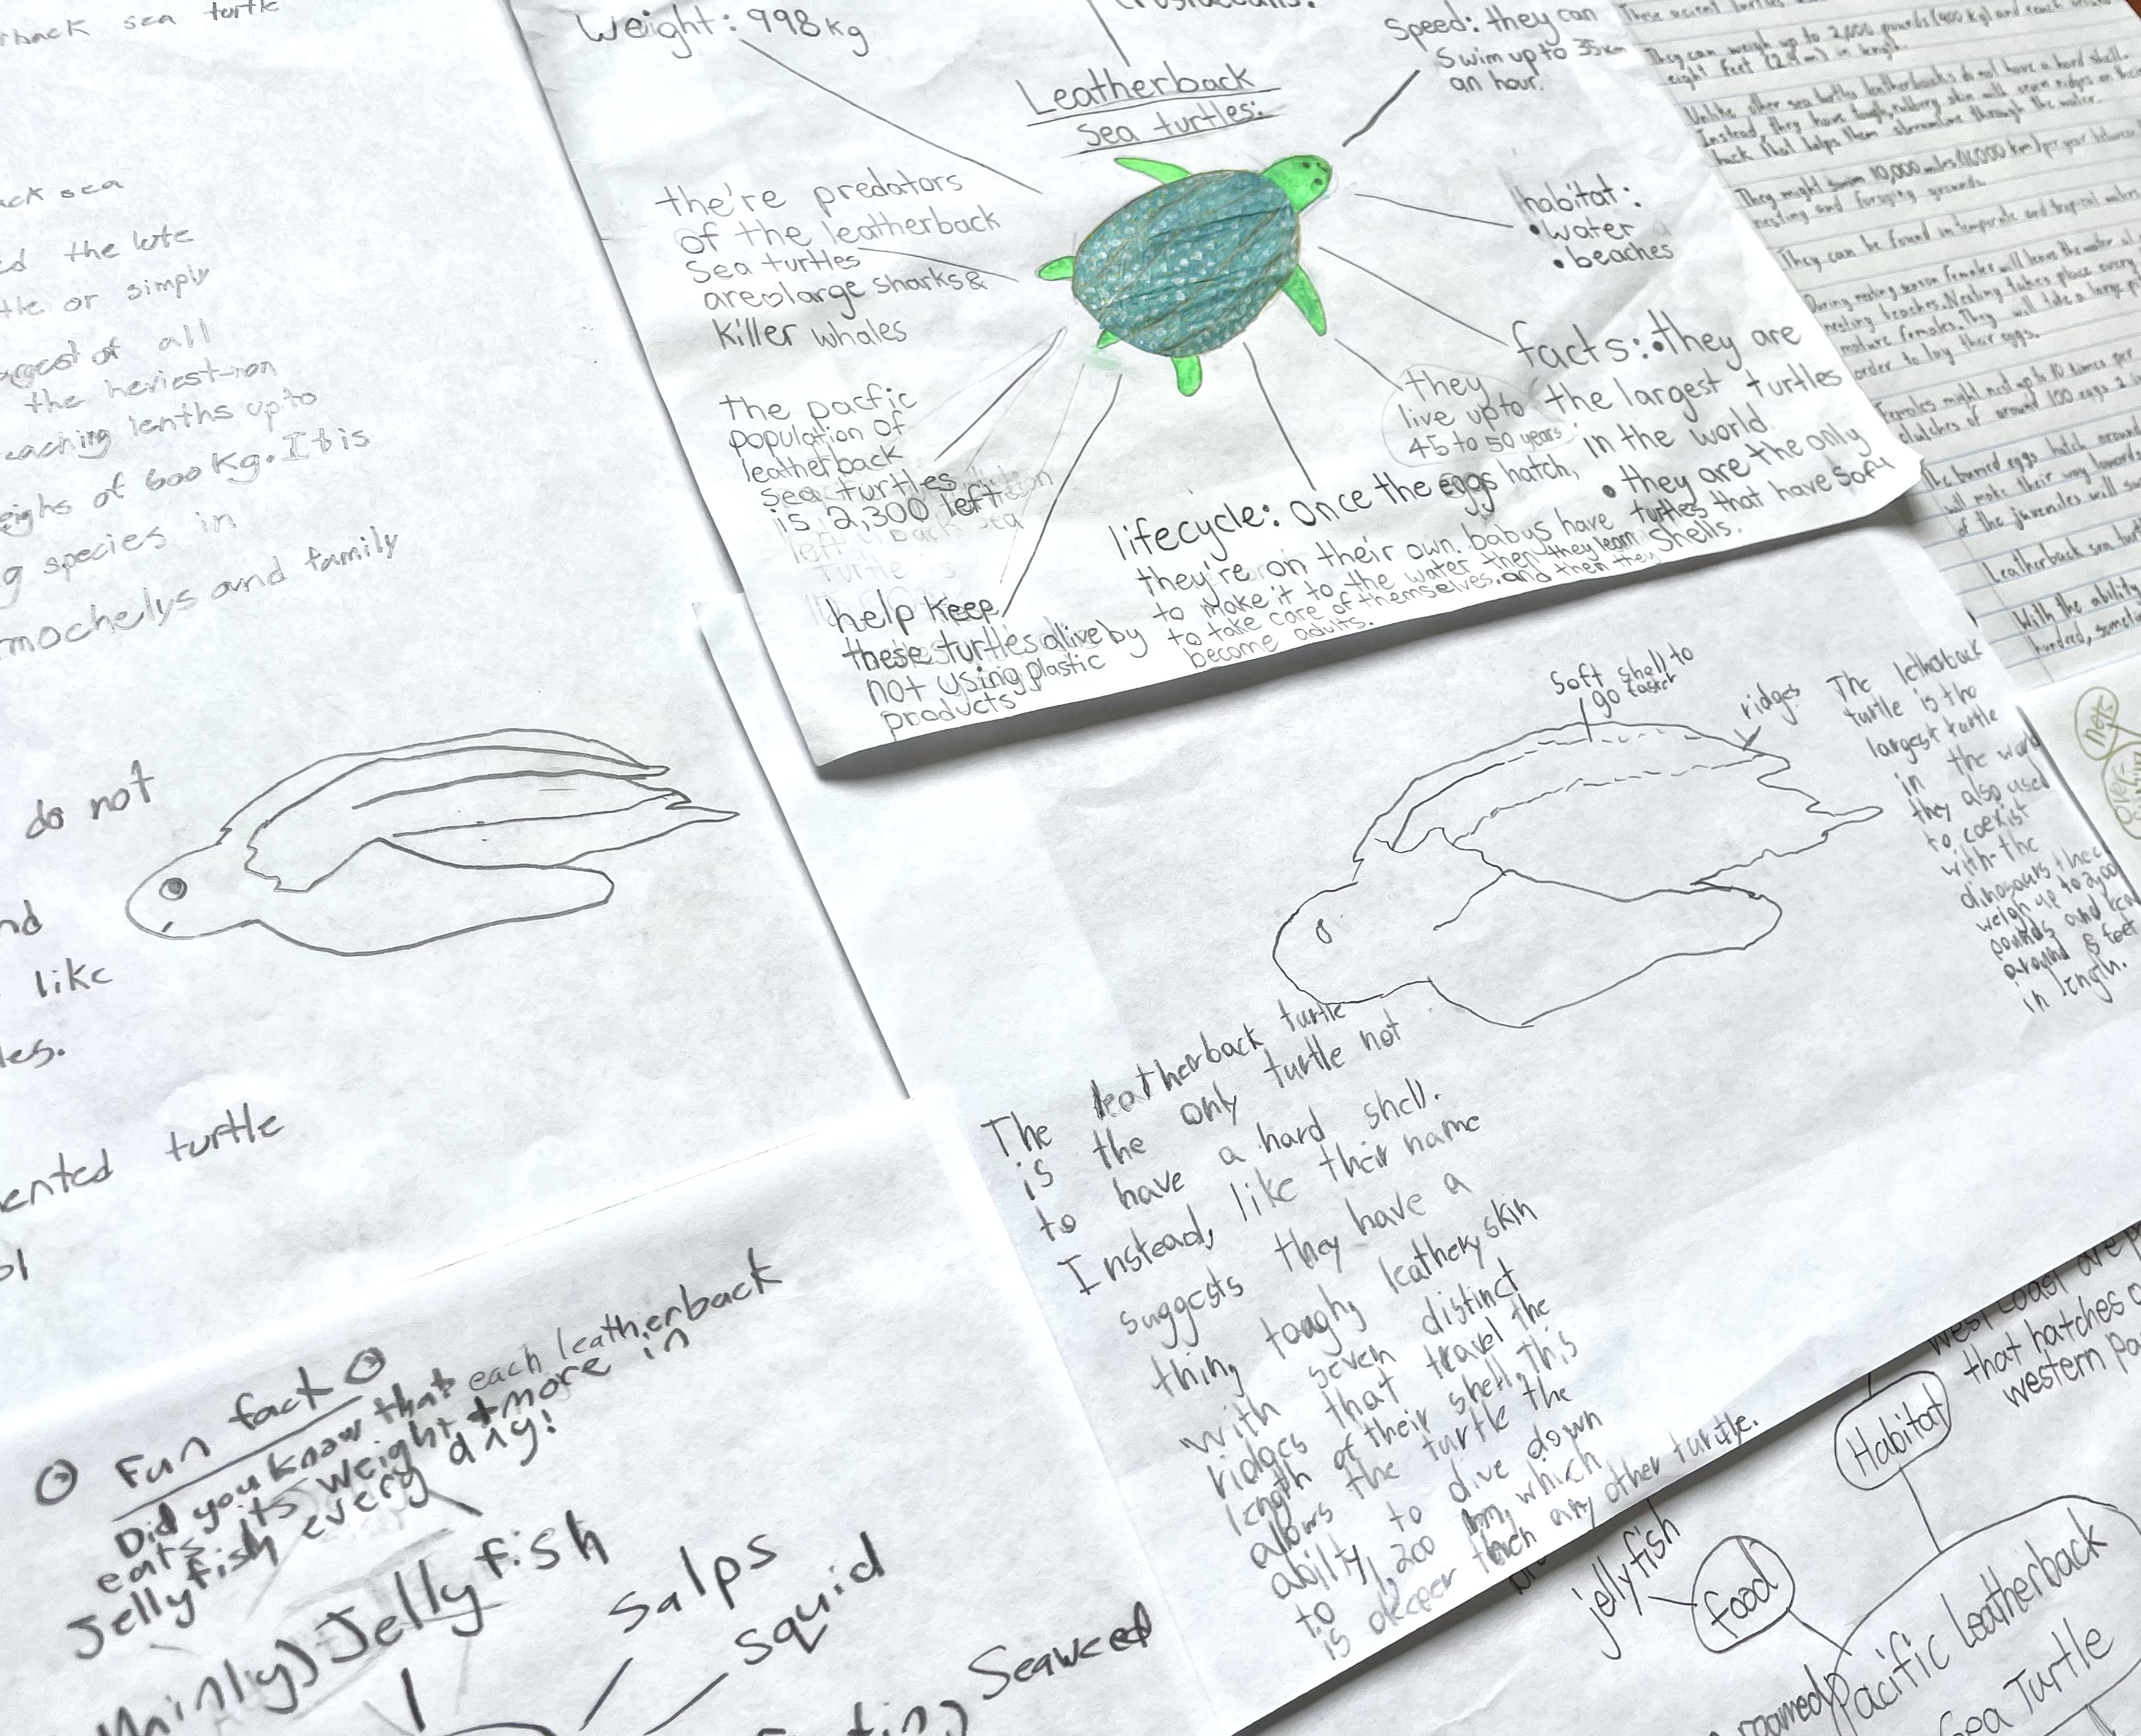 rback sea turtle
ack sea
ed the lute
tle or simply
argest of all
the heriest-non
eaching lenths up to
eighs of 600 Kg. It is
g species in
mochelys and family
do not
nd
like
les.
ented turtle
ol
Weight: 998 kg
Leatherback
Sea turtles:
Speed: they can
Swim up to 35 km
an hour.
the're predators
of the leatherback
Sea turtles
are large sharks &
Killer whales
habitat:
• water
• beaches
the pacfic
population of
leatherback
sea turtles
is 2,300 left
help keep
these turtles alive by
not using plastic
products
they
live up to
45 to 50 years
facts: • they are
the largest turtles
in the world
• they are the only
turtles that have soft
shells.
lifecycle: once the eggs hatch,
they're on their own. babys have
to make it to the water then they learn
to take care of themselves, and then they
become adults.
They can weigh up to 2,000 pounds (900 kg) and reach
eight feet (2.4 m) in length.
Unlike other sea turtles leatherbacks do not have a hard shell.
Instead, they have tough, rubbery skin with seven ridges on their
back that helps them streamline through the water.
They might swim 10,000 miles (16,000 km) per year between
nesting and foraging grounds.
They can be found in temperate and tropical waters
During nesting season females will leave the water
nesting beaches. Nesting takes place every
mature females. They will take a large
order to lay their eggs.
Females might nest up to 10 times per
clutches of around 100 eggs
The burried eggs hatch around
will make their way towards
of the juveniles will
Leatherback sea turt
With the ability
hundred, someti
nets
Over-
Soft shell to
go faster
ridges
The letherback
turtle is the
largest turtle
in the world
they also used
to coexist
with the
dinosaurs they
weigh up to 2,00
pounds and
around 8 feet
in length.
The leatherback turtle
is the only turtle not
to have a hard shell.
Instead, like their name
suggests they have a
thin, tough, leathery skin
with seven distinct
ridges that travel the
length of their shell, this
allows the turtle the
ability to dive down
to 1,200 m, which
is deeper then any other turtle.
Fun fact
Did you know that each leatherback
eats its weight + more in
Jellyfish every day!
Mainly) Jellyfish
Salps
Squid
Seaweed
West Coast are
that hatches
western Pa
Habitat
food
jellyfish
Pacific Leatherback
Sea Turtle